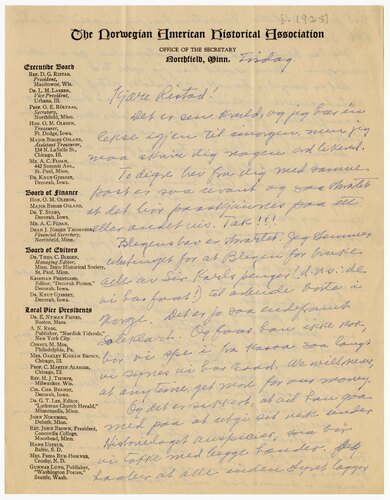 [c. 1928]
The Norwegian American Historical Association
OFFICE OF THE SECRETARY
Northfield, Minn.
Tirsdag.
Executive Board
REV. D. G. RISTAD,
President,
Manitowoc, Wis.
DR. L. M. LARSEN,
Vice President,
Urbana, Ill.
PROF. O. E. RÖLVAAG,
Secretary,
Northfield, Minn.
HON. O. M. OLESON,
Treasurer,
Ft. Dodge, Iowa.
MAJOR BIRGER OSLAND,
Assistant Treasurer,
134 N. LaSalle St.,
Chicago, Ill.
MR. A. C. FLOAN,
442 Summit Ave.,
St. Paul, Minn.
DR. KNUT GJERSET,
Decorah, Iowa.
Board of Finance
HON. O. M. OLESON,
MAJOR BIRGER OSLAND,
DR. T. STABO,
Decorah, Iowa.
MR. A. C. FLOAN,
DEAN J. JÖRGEN THOMPSON,
Financial Secretary,
Northfield, Minn.
Board of Editors
DR. THEO. C. BLEGEN,
Managing Editor,
Minn. State Historical Society,
St. Paul, Minn.
KRISTIAN PRESTGARD,
Editor, "Decorah Posten,"
Decorah, Iowa.
DR. KNUT GJERSET,
Decorah, Iowa.
Local Vice Presidents
DR. E. NYMAN FIGVED,
Boston, Mass.
A. N. RYGG,
Publisher, "Nordisk Tidende,"
New York City
CONSUL M. MOE,
Philadelphia, Pa.
MRS. OAKLEY KISSAM BROWN,
Chicago, Ill.
PROF. C. MARTIN ALSAGER,
Chicago, Ill.
REV. H. J. THORPE,
Milwaukee, Wis.
COL. CHR. BRANDT,
DR. G. T. LEE, EDITOR
"Lutheran Church Herald,"
Minneapolis, Minn.
JOHN NORNBORG,
Duluth, Minn.
REV. JOHN BROWN, PRESIDENT
Concordia College,
Moorhead, Minn.
HANS USTRUD,
Baltic, S. D.
MRS. FRIDA BUE-HOMNES,
Crosby, N. D.
GUNNAR LUND, PUBLISHER,
"Washington Posten,"
Seattle, Wash.
Kjære Ristad!
Det er sen kveld, og jeg har en
lekse igjen til imorgen, men jeg
maa skrive dig nogen ord
To digre brev fra dig med samme
post er saa uvant og saa
at det bør paaskjønnes paa
eller andet vis. Tak!!!
Blegens brev er Jeg
for at Blegen får bruke
alle av Sir Karls penger (d.v.s: de
vi har faat!) til at arbeide borte i
Norge. Det er jo saa
Og foar han ikke nok,
bør vi i fra kassa saa langt
vi har evne til. We will never,
at any time, get more for our money.
Og det er sikkert, at
med paa at utgi set verk under
Historielagets auspicier, saa bør
vi takke med begge hænder. Jeg
haaber at alle,